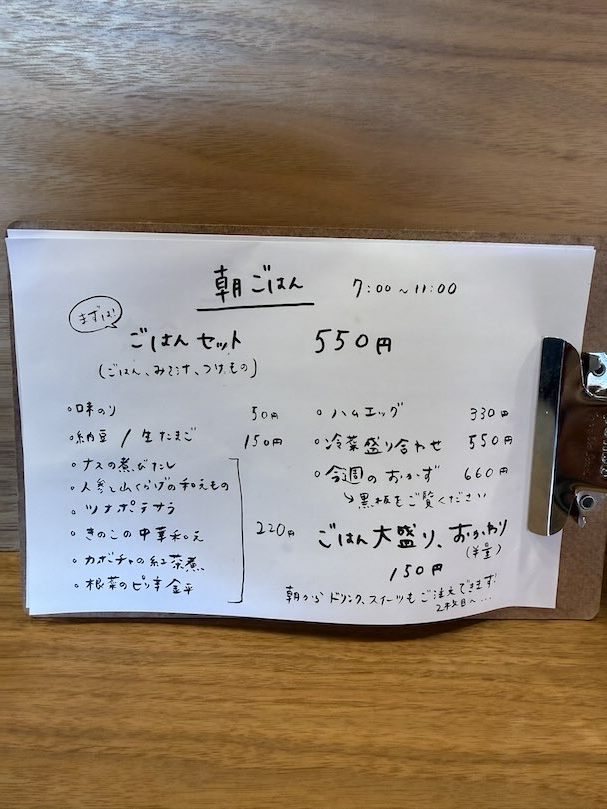 朝ごはん 7:00~11:00
まずは!
ごはんセット 550円
(ごはん、みそ汁、つけもの)
・味のり 50円
・納豆/生たまご 150円
・ナスの煮びたし
・人参と山くらげの和えもの
・ツナポテサラ
・きのこの中華和え
・カボチャの紅茶煮
・根菜のピリ辛金平
220円
・ハムエッグ 330円
・冷菜盛り合わせ 550円
・今週のおかず 660円
↳黒板をご覧ください
ごはん大盛り、おかわり
(半量)
150円
朝からドリンク、スイーツもご注文できます!
2枚目へ...